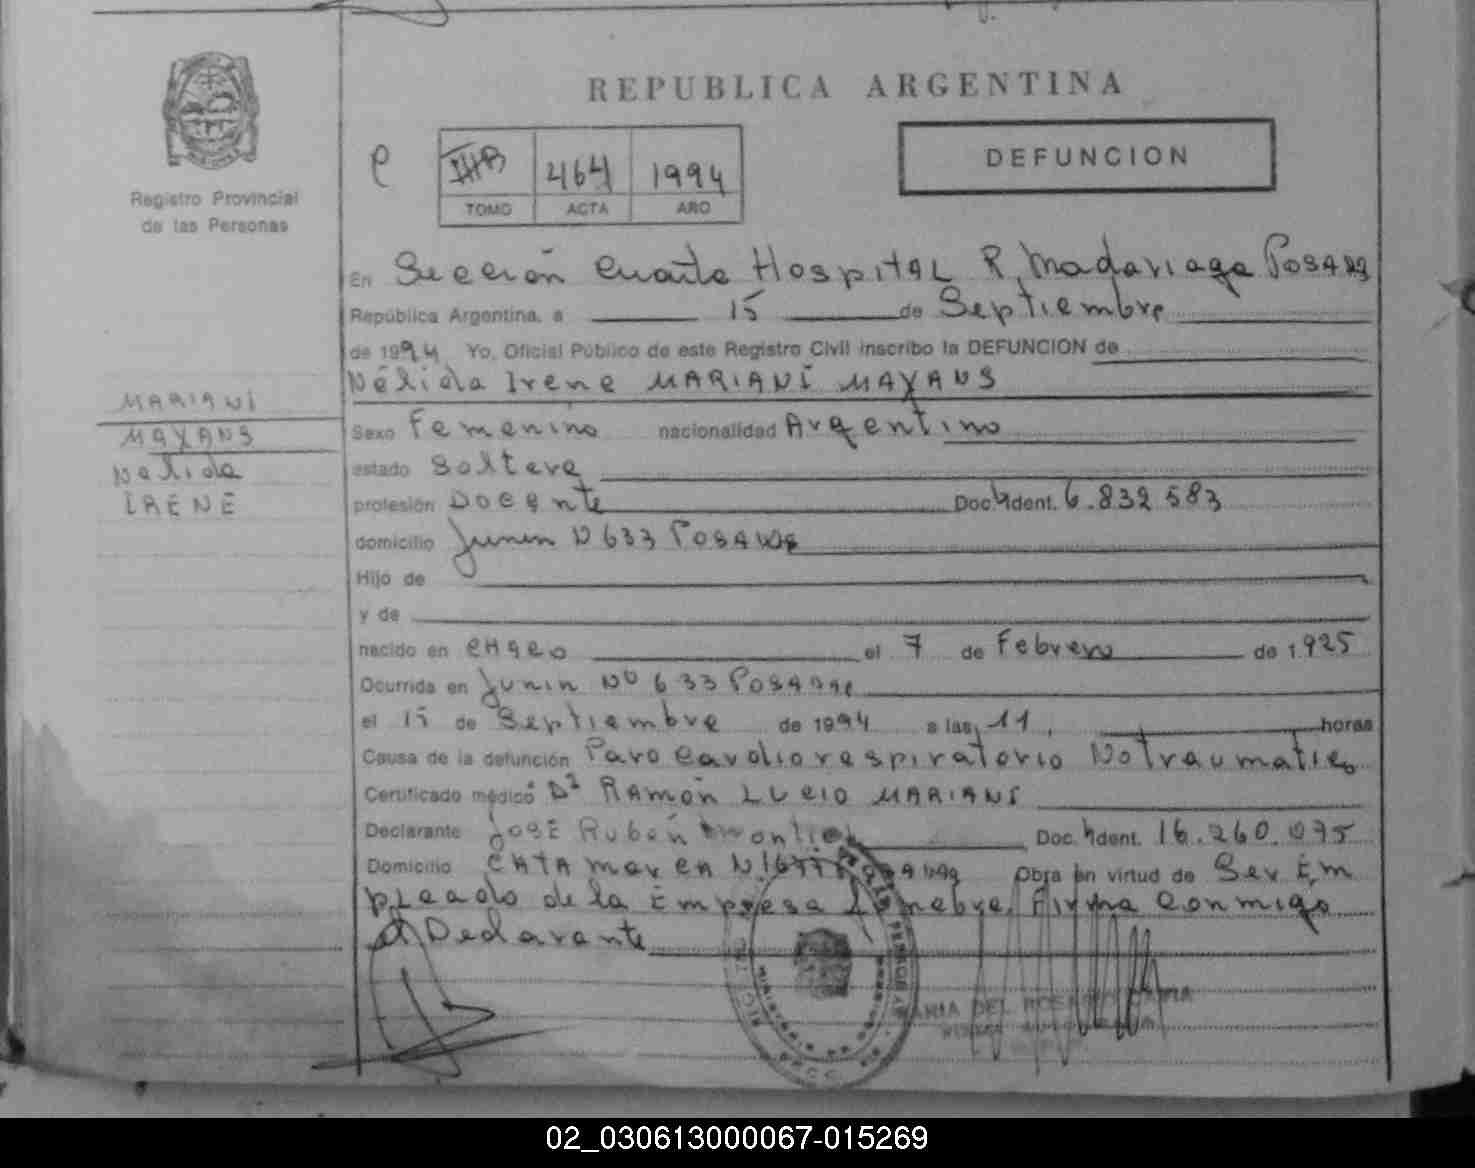 REPUBLICA ARGENTINA
DEFUNCION
Registro Provincial
de las Personas
464 1994
TOMO ACTA AÑO
En Sección Cuarta Hospital R. Madariaga Posadas
República Argentina, a 15 de Septiembre
de 1994 Yo, Oficial Público de este Registro Civil inscribo la DEFUNCION de
Nélida Irene MARIANI MAYANS
MARIANI
MAYANS
Nelida
IRENE
Sexo Femenino nacionalidad Argentino
estado Soltera
profesión Docente Doc. Ident. 6.832.583
domicilio Junin N 633 Posadas
Hijo de
y de
nacido en CHACO el 7 de Febrero de 1.925
Ocurrida en Junin Nº 633 Posadas
el 15 de Septiembre de 1994 a las 11, horas
Causa de la defunción Paro Cardiorespiratorio No Traumatico
Certificado médico Dr RAMÓN LUCIO MARIANI
Declarante JOSÉ Rubén Montiel Doc. Ident. 16.260.075
Domicilio CATAMARCA N Obra en virtud de Ser Em
pleado de la Empresa Funebre, Firma Conmigo
el Declarante
MARIA DEL ROSARIO
02_030613000067-015269